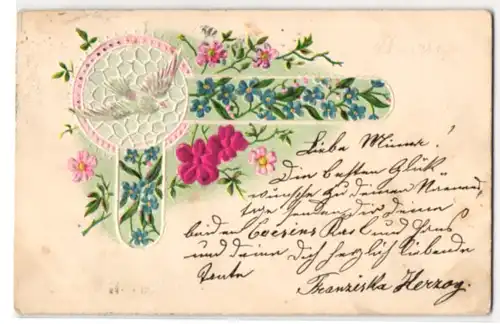 Liebe Minna!
Die besten Glück-
wünsche zu deinem Namens-
tage senden dir deine
beiden Cousins und Hans
und deine dich herzlich liebende
Tante
Franziska Herzog.